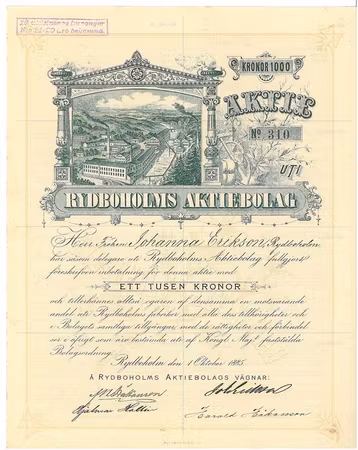 KRONOR 1000
AKTIE
No 310
UTI
RYDBOHOLMS AKTIEBOLAG
Herr Fröken Johanna Erikson, Rydboholm
har såsom delegare uti Rydboholms Aktiebolag fullgjort
föreskrifven inbetalning för denna aktie med
ETT TUSEN KRONOR
och tillerkännes alltså egaren af densamma en motsvarande
andel uti Rydboholms fabriker med alla dess tillhörigheter och
i Bolagets samtliga tillgångar med de rättigheter och förbindel
ser i öfrigt som äro bestämda uti af Kongl. Maj:t fastställda
Bolagsordning.
Rydboholm den 1 Oktober 1885
Å RYDBOHOLMS AKTIEBOLAGS VÄGNAR:
Hjalmar
Harald Håkanson